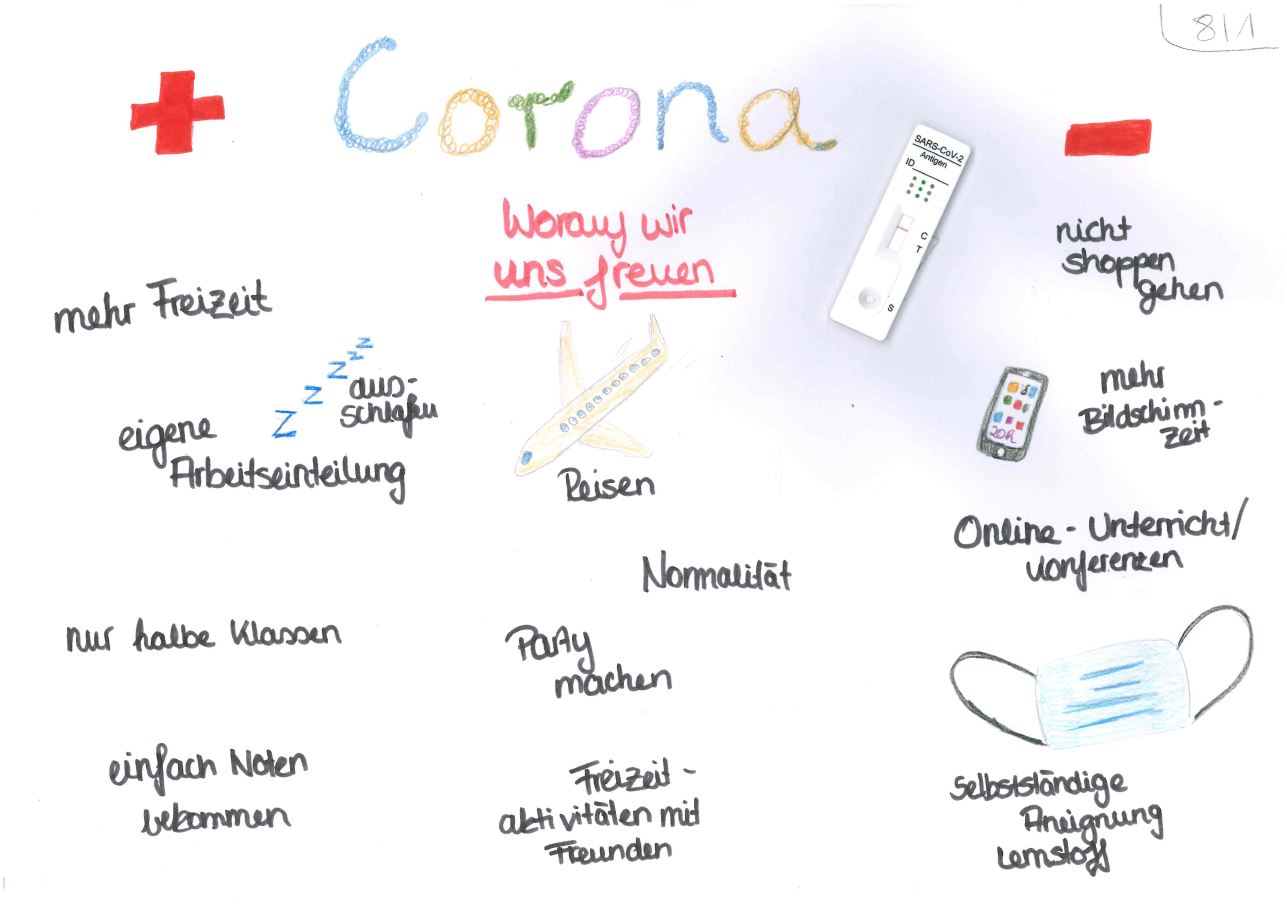 8/1
Corona
+
mehr Freizeit
Z Z Z Z Z
aus-
schlafen
eigene
Arbeitseinteilung
nur halbe Klassen
einfach Noten
bekommen
Worauf wir
uns freuen
Reisen
Normalität
Party
machen
Freizeit-
aktivitäten mit
Freunden
SARS-CoV-2
Antigen
ID
C
T
S
-
nicht
shoppen
gehen
mehr
Bildschirm-
zeit
20h
Online-Unterricht/
konferenzen
Selbstständige
Aneignung
Lernstoff